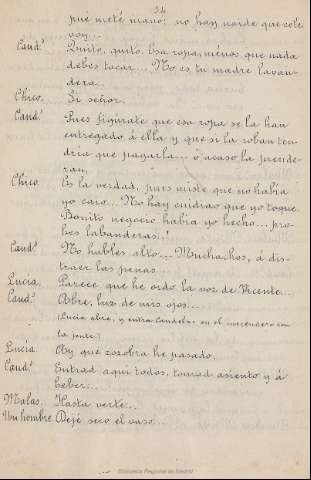 34
pué meté mano; no hay naide que role
voy...
Cand.ª Quito, quito. Esa ropa ménos que nada
debes tocar... No es tu madre lavan-
dera.
Chico. Si señor.
Cand. Pues figúrate que esa ropa se la han
entregado á ella y que si la roban ten-
dria que pagarla... ó acaso la prende-
ran.
Chico Es la verdad, pues miste que no habia
yo caro... No hay cuidiao que yo toque.
Bonito negocio habia yo hecho... pro-
bes labanderas!
Cand.ª No hables alto... Muchachos, á dis-
traer las penas.
Lucia. Parece que he oido la voz de Vicente...
Cand.ª Abre, luz de mis ojos...
(Lucia abre, y entra Candela en el merendero con
la gente.)
Lucia. Ay que zozobra he pasado.
Cand.ª Entrad aqui todos, tomad asiento y á
beber...
Malas. Hasta verte...
Un hombre Dejé seco el vaso...
Biblioteca Regional de Madrid